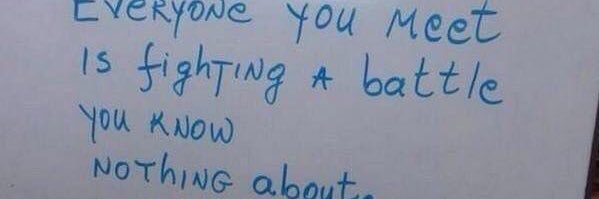 EVERYONE YOU MEET
IS fighTING A battle
YOU KNOW
NOThING about.